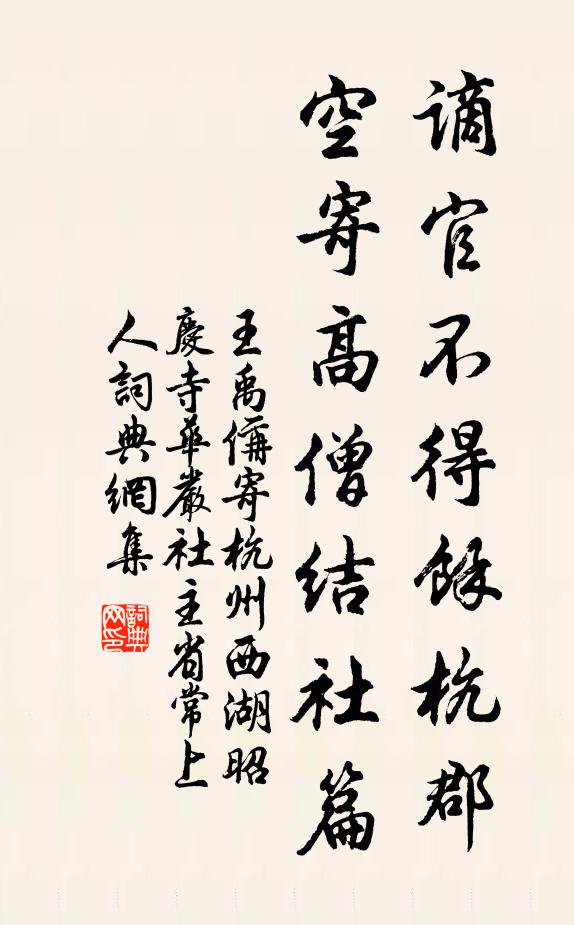 謫官不得餘杭郡
空寄高僧結社篇
王禹偁寄杭州西湖昭
慶寺華嚴社主省常上
人詞典網集
詞典
网印